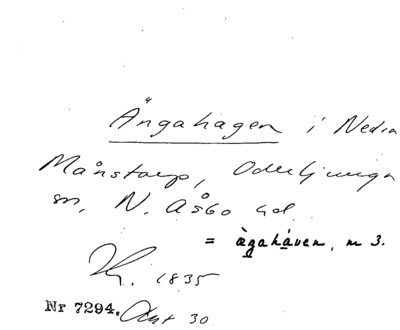 Ängahagen i Nedra
Månstorp, Oderljunga
sn, N. Åsbo hd.
= ägahåven, m 3.
1835
Nr 7294. Akt 30